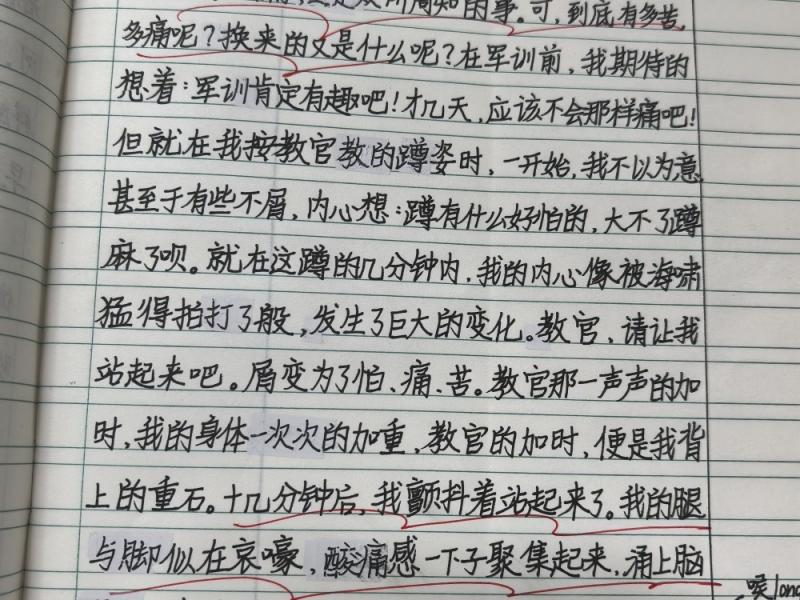 所周知的事。可,到底有多苦,
多痛呢?换来的又是什么呢?在军训前,我期待的
想着:军训肯定有趣吧!才几天,应该不会那样痛吧!
但就在我按教官教的蹲姿时,一开始,我不以为意
甚至于有些不屑,内心想:蹲有什么好怕的,大不了蹲
麻了呗。就在这蹲的几分钟内,我的内心像被海啸
猛得拍打了般,发生了巨大的变化。教官,请让我
站起来吧。屑变为了怕、痛、苦。教官那一声声的加
时,我的身体一次次的加重,教官的加时,便是我背
上的重石。十几分钟后,我颤抖着站起来了。我的腿
与脚似在哀嚎,酸痛感一下子聚集起来,涌上脑